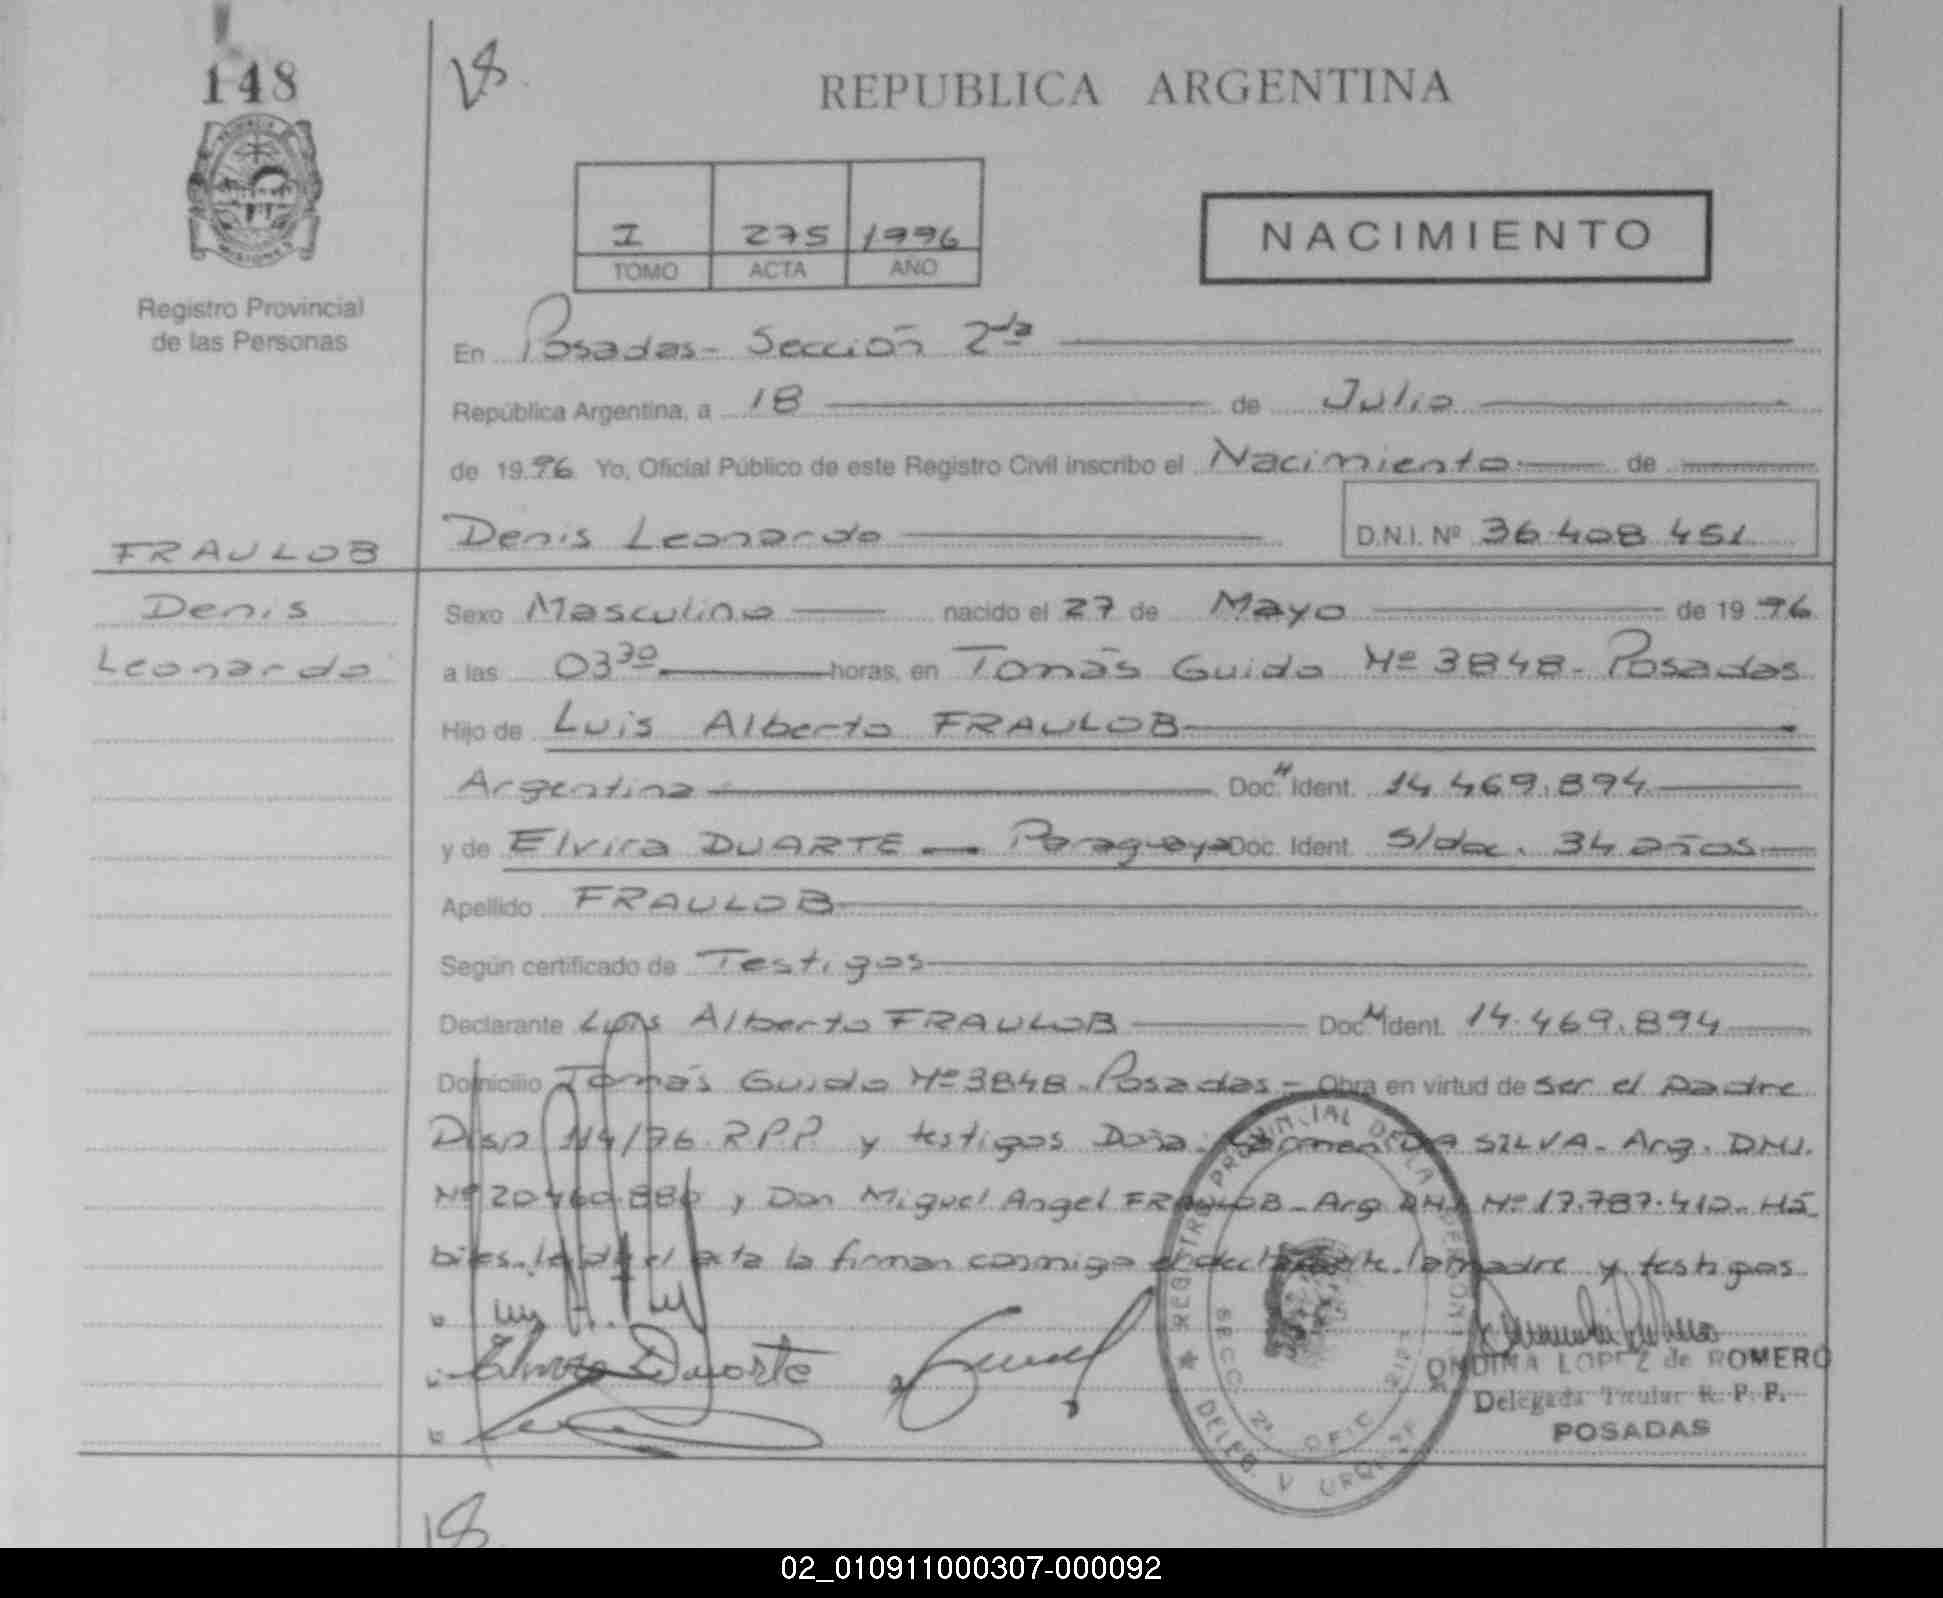 148
18
REPUBLICA ARGENTINA
PROVINCIA DE MISIONES
I 275 1996
TOMO ACTA AÑO
NACIMIENTO
Registro Provincial
de las Personas
En Posadas - Sección 2da
República Argentina, a 18 de Julio
de 1996 Yo, Oficial Público de este Registro Civil inscribo el Nacimiento de
FRAULOB Denis Leonardo D.N.I. Nº 36.408.451
Denis Sexo Masculino nacido el 27 de Mayo de 1996
Leonardo a las 03 30 horas, en Tomás Guido Nº 3848 - Posadas
Hijo de Luis Alberto FRAULOB
Argentina Doc. Ident. 14.469.894
y de Elvira DUARTE - Paraguaya Doc. Ident. S/doc. 34 años
Apellido FRAULOB
Según certificado de Testigos
Declarante Luis Alberto FRAULOB Doc. Ident. 14.469.894
Domicilio Tomás Guido Nº 3848 - Posadas - Obra en virtud de ser el padre
Disp 114/96 R.P.P. y testigos Doña Carmen DA SILVA - Arg. DNI.
Nº 20.460.880 y Don Miguel Angel FRAULOB - Arg DNI Nº 17.787.410 - Há
biles - leida el acta la firman conmigo el declarante la madre y testigos
Elvira Duarte
REGISTRO PROVINCIAL DE LAS PERSONAS
SECC. 2ª OFIC.
DELEG. V URQUIZA
ONDINA LOPEZ de ROMERO
Delegada Titular R. P. P.
POSADAS
18
02_010911000307-000092